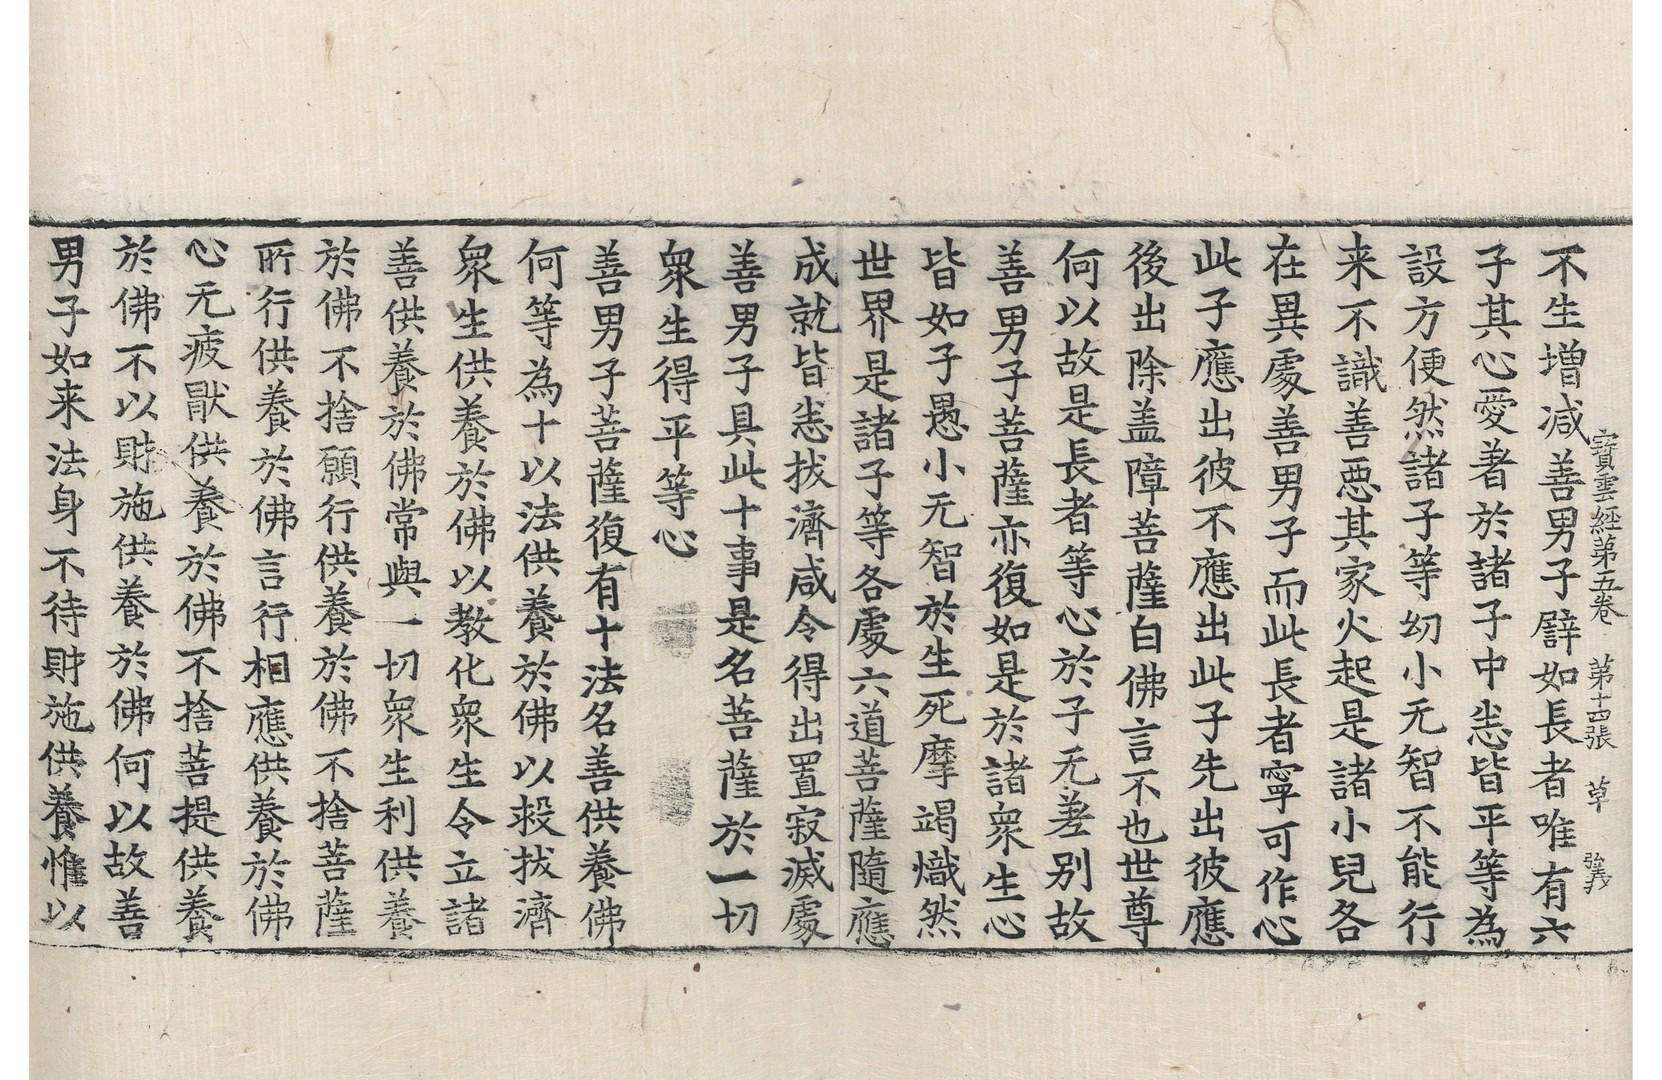 寶雲經第五卷 第十四張 草
不生增减善男子譬如長者唯有六
子其心愛著於諸子中悉皆平等為
設方便然諸子等幼小无智不能行
来不識善惡其家火起是諸小兒各
在異處善男子而此長者寧可作心
此子應出彼不應出此子先出彼應
後出除盖障菩薩白佛言不也世尊
何以故是長者等心於子无差别故
善男子菩薩亦復如是於諸衆生心
皆如子愚小无智於生死摩竭熾然
世界是諸子等各處六道菩薩隨應
成就皆悉拔濟咸令得出置寂滅處
善男子具此十事是名菩薩於一切
衆生得平等心
善男子菩薩復有十法名善供養佛
何等為十以法供養於佛以救拔濟
衆生供養於佛以教化衆生令立諸
善供養於佛常與一切衆生利供養
於佛不捨願行供養於佛不捨菩薩
所行供養於佛言行相應供養於佛
心无疲猒供養於佛不捨菩提供養
於佛不以財施供養於佛何以故善
男子如来法身不待財施供養惟以